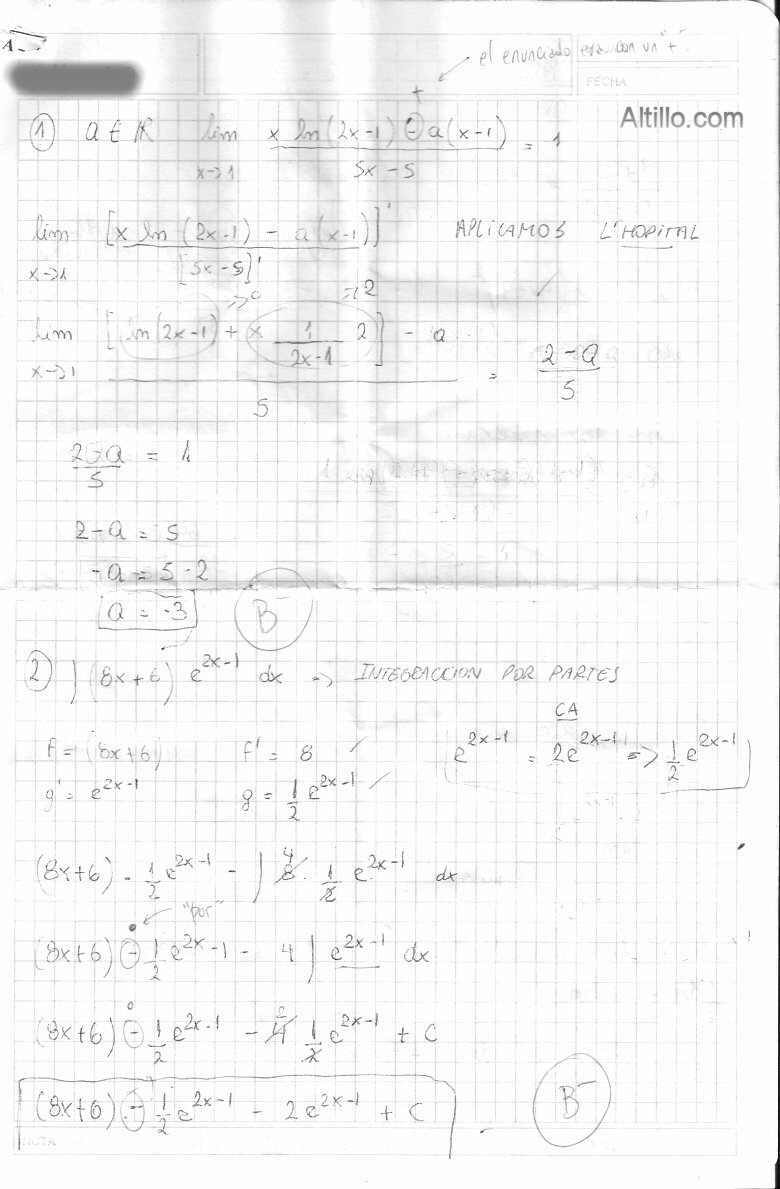 el enunciado era con un "+".
FECHA
Altillo.com
+
① a ∈ ℝ lim x→1 x ln(2x-1) ⊖ a(x-1) / 5x-5 = 1
lim x→1 [x ln (2x-1) - a(x-1)]' / [5x-5]' APLICAMOS L'HOPITAL
=>0 =>2
lim x→1 [ln(2x-1) + x 1/2x-1 2] - a / 5 = 2-a/5
2-a/5 = 1
2-a = 5
-a = 5-2
a = -3 B⁻
② ∫(8x+6) e^2x-1 dx => INTEGRACCION POR PARTES
CA
f = (8x+6) f' = 8 e^2x-1 = 2e^2x-1 => 1/2 e^2x-1
g' = e^2x-1 g = 1/2 e^2x-1
(8x+6) - 1/2 e^2x-1 - ∫ 8 4 . 1/2 e^2x-1 dx
"por"
(8x+6) ⊖ 1/2 e^2x-1 - 4 ∫ e^2x-1 dx
(8x+6) ⊖ 1/2 e^2x-1 - 4 2 1/2 e^2x-1 + C
(8x+6) ⊖ 1/2 e^2x-1 - 2e^2x-1 + C B⁻